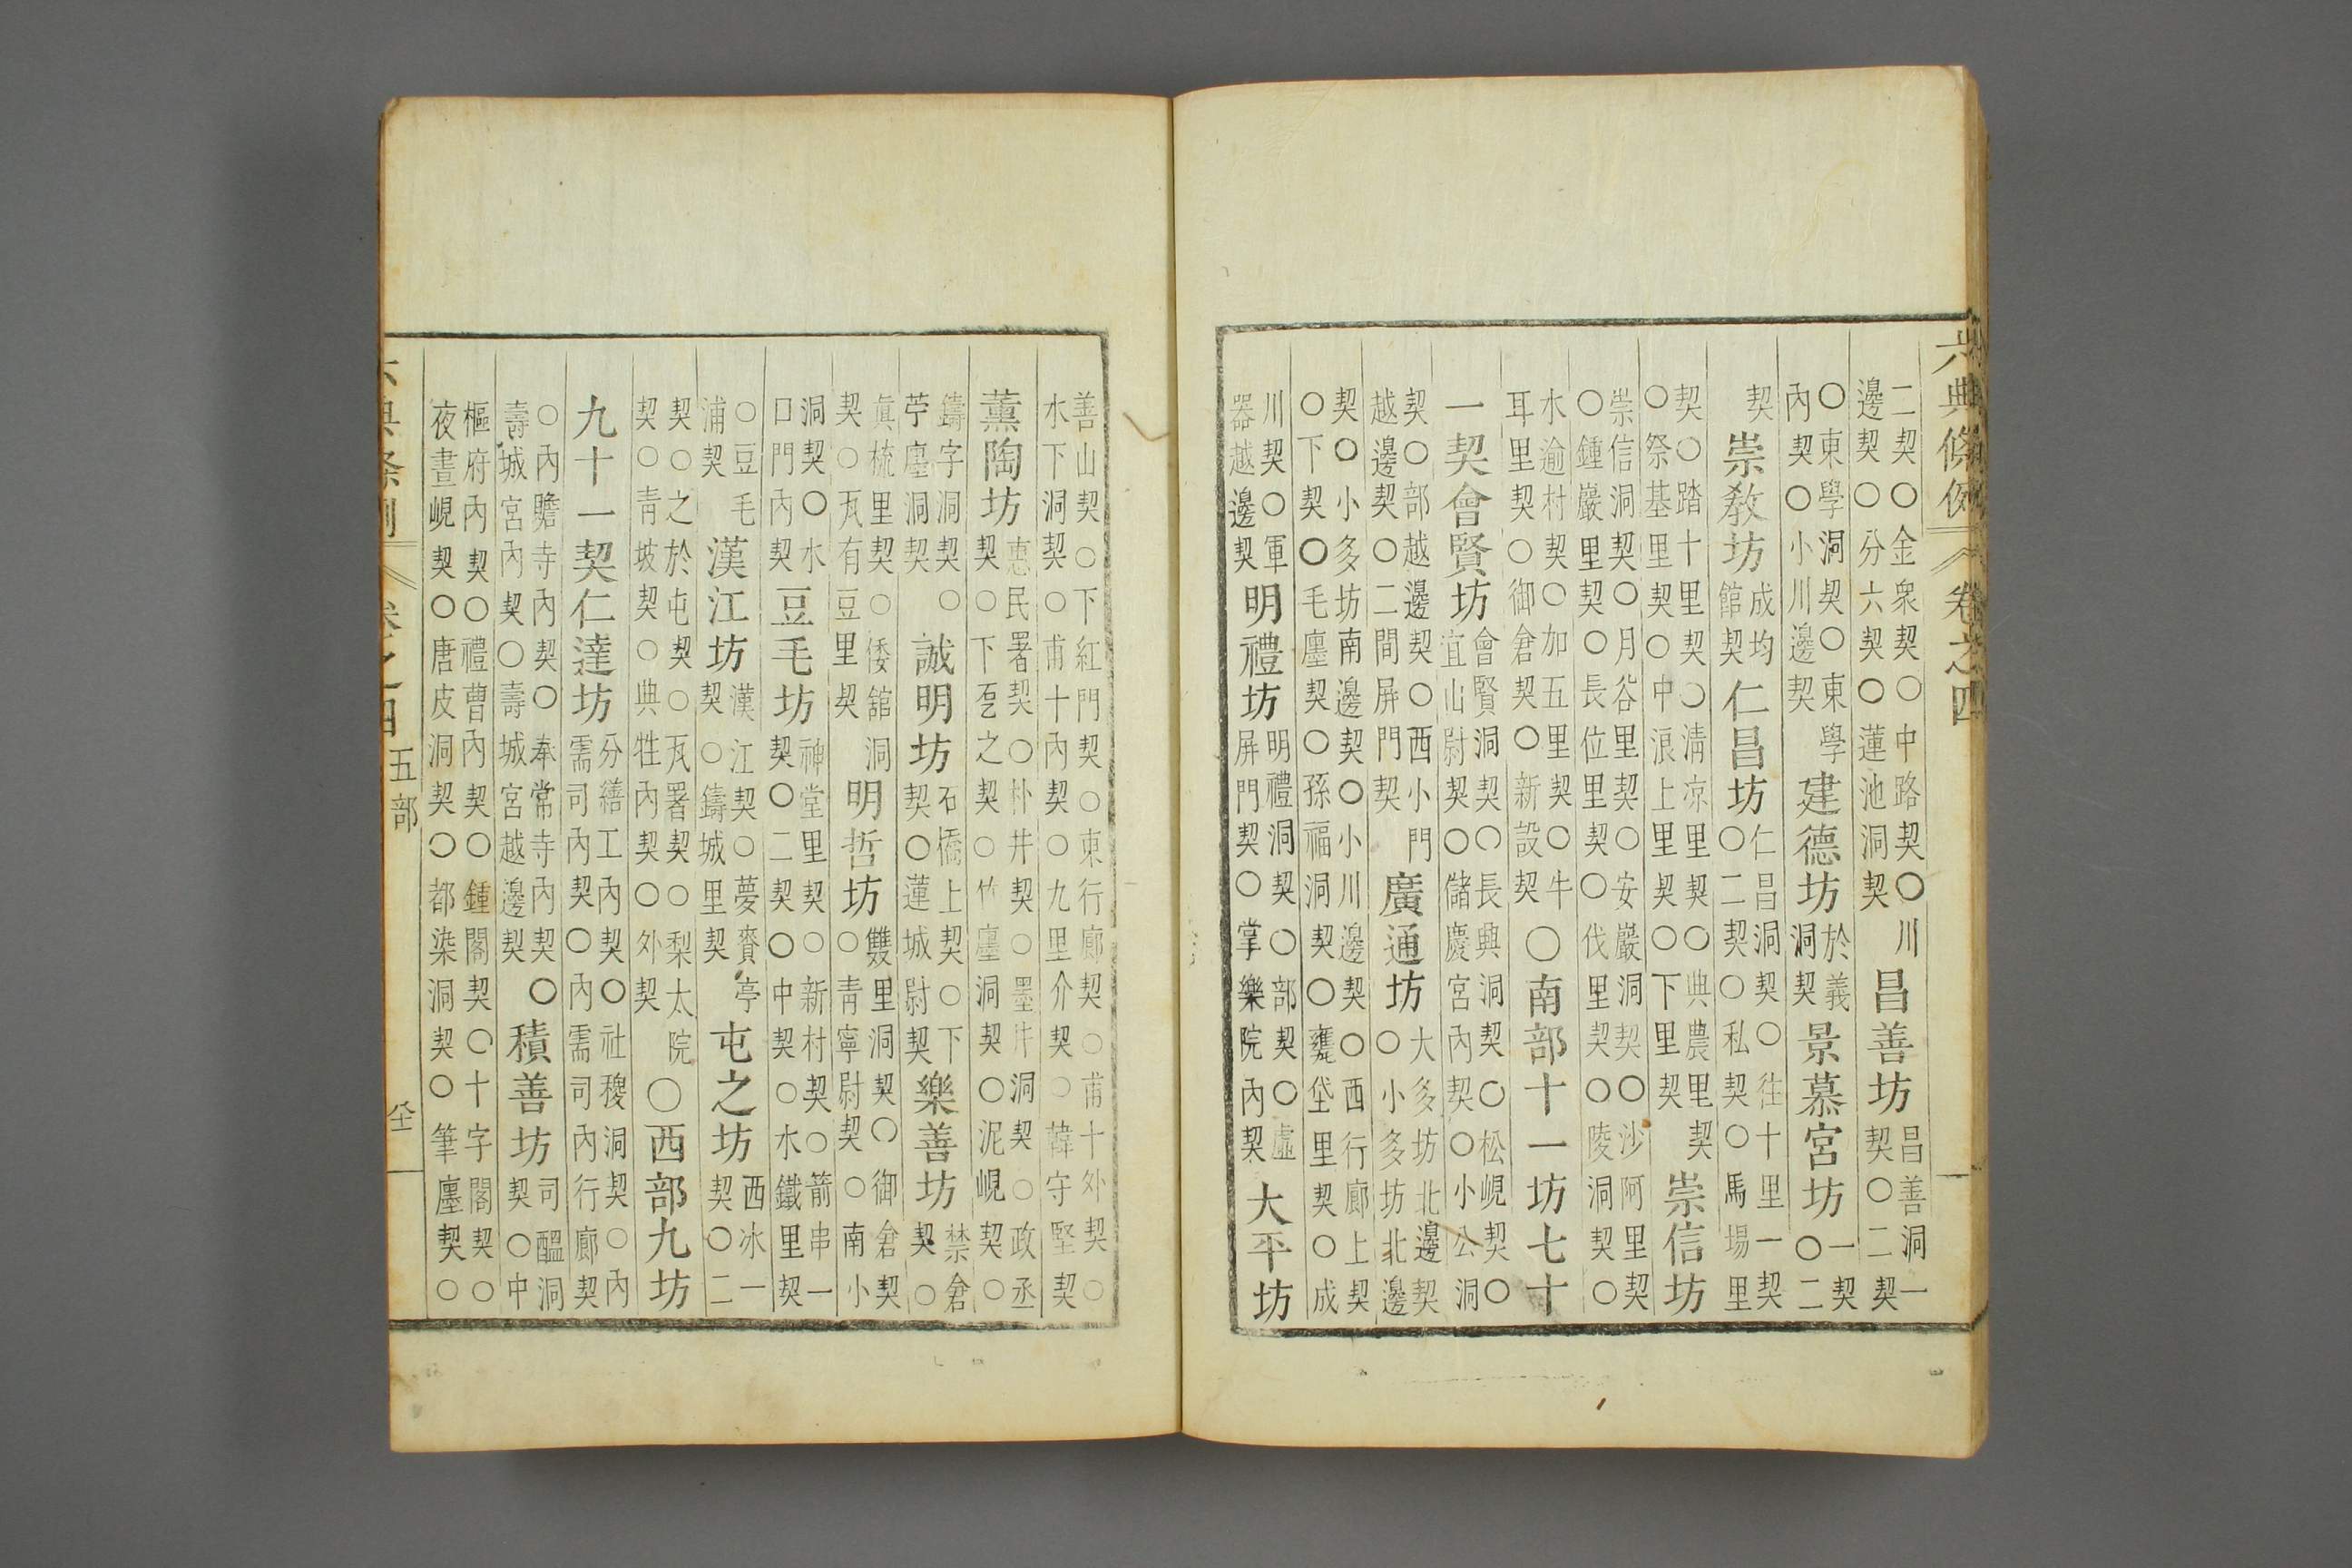 六典條例 卷之四
二契〇金衆契〇中路契〇川
邊契〇分六契〇蓮池洞契
昌善坊
昌善洞一
契〇二契
〇東學洞契〇東學
內契〇小川邊契
建德坊
於義
洞契
景慕宮坊
一契
〇二
契
崇教坊
成均
館契
仁昌坊
仁昌洞契〇往十里一契
〇二契〇私契〇馬場里
契〇踏十里契〇淸凉里契〇典農里契
〇祭基里契〇中浪上里契〇下里契
崇信坊
崇信洞契〇月谷里契〇安巖洞契〇沙阿里契
〇鍾巖里契〇長位里契〇伐里契〇陵洞契〇
水逾村契〇加五里契〇牛
耳里契〇御倉契〇新設契
〇南部十一坊七十
一契會賢坊
會賢洞契〇長興洞契〇松峴契〇
宜山尉契〇儲慶宮內契〇小公洞
契〇部越邊契〇西小門
越邊契〇二間屛門契
廣通坊
大多坊北邊契
〇小多坊北邊
契〇小多坊南邊契〇小川邊契〇西行廊上契
〇下契〇毛廛契〇孫福洞契〇甕垈里契〇成
川契〇軍
器越邊契
明禮坊
明禮洞契〇部契〇虛
屛門契〇掌樂院內契
大平坊
善山契〇下紅門契〇東行廊契〇甫十外契〇
水下洞契〇甫十內契〇九里介契〇韓守堅契
薰陶坊
惠民署契〇朴井契〇墨井洞契〇政丞
契〇下乭之契〇竹廛洞契〇泥峴契〇
鑄字洞契〇
苧廛洞契
誠明坊
石橋上契〇下
契〇蓮城尉契
樂善坊
禁倉
契〇
眞梳里契〇倭舘洞
契〇瓦有豆里契
明哲坊
雙里洞契〇御倉契
〇靑寧尉契〇南小
洞契〇水
口門內契
豆毛坊
神堂里契〇新村契〇箭串一
契〇二契〇中契〇水鐵里契
〇豆毛
浦契
漢江坊
漢江契〇夢賚亭
契〇鑄城里契
屯之坊
西冰一
契〇二
契〇之於屯契〇瓦署契〇梨太院
契〇靑坡契〇典牲內契〇外契
〇西部九坊
九十一契仁達坊
分繕工內契〇社稷洞契〇內
需司內契〇內需司內行廊契
〇內贍寺內契〇奉常寺內契〇
壽城宮內契〇壽城宮越邊契
積善坊
司醞洞
契〇中
樞府內契〇禮曹內契〇鍾閣契〇十字閣契〇
夜晝峴契〇唐皮洞契〇都染洞契〇筆廛契〇
六典條例 卷之四 五部